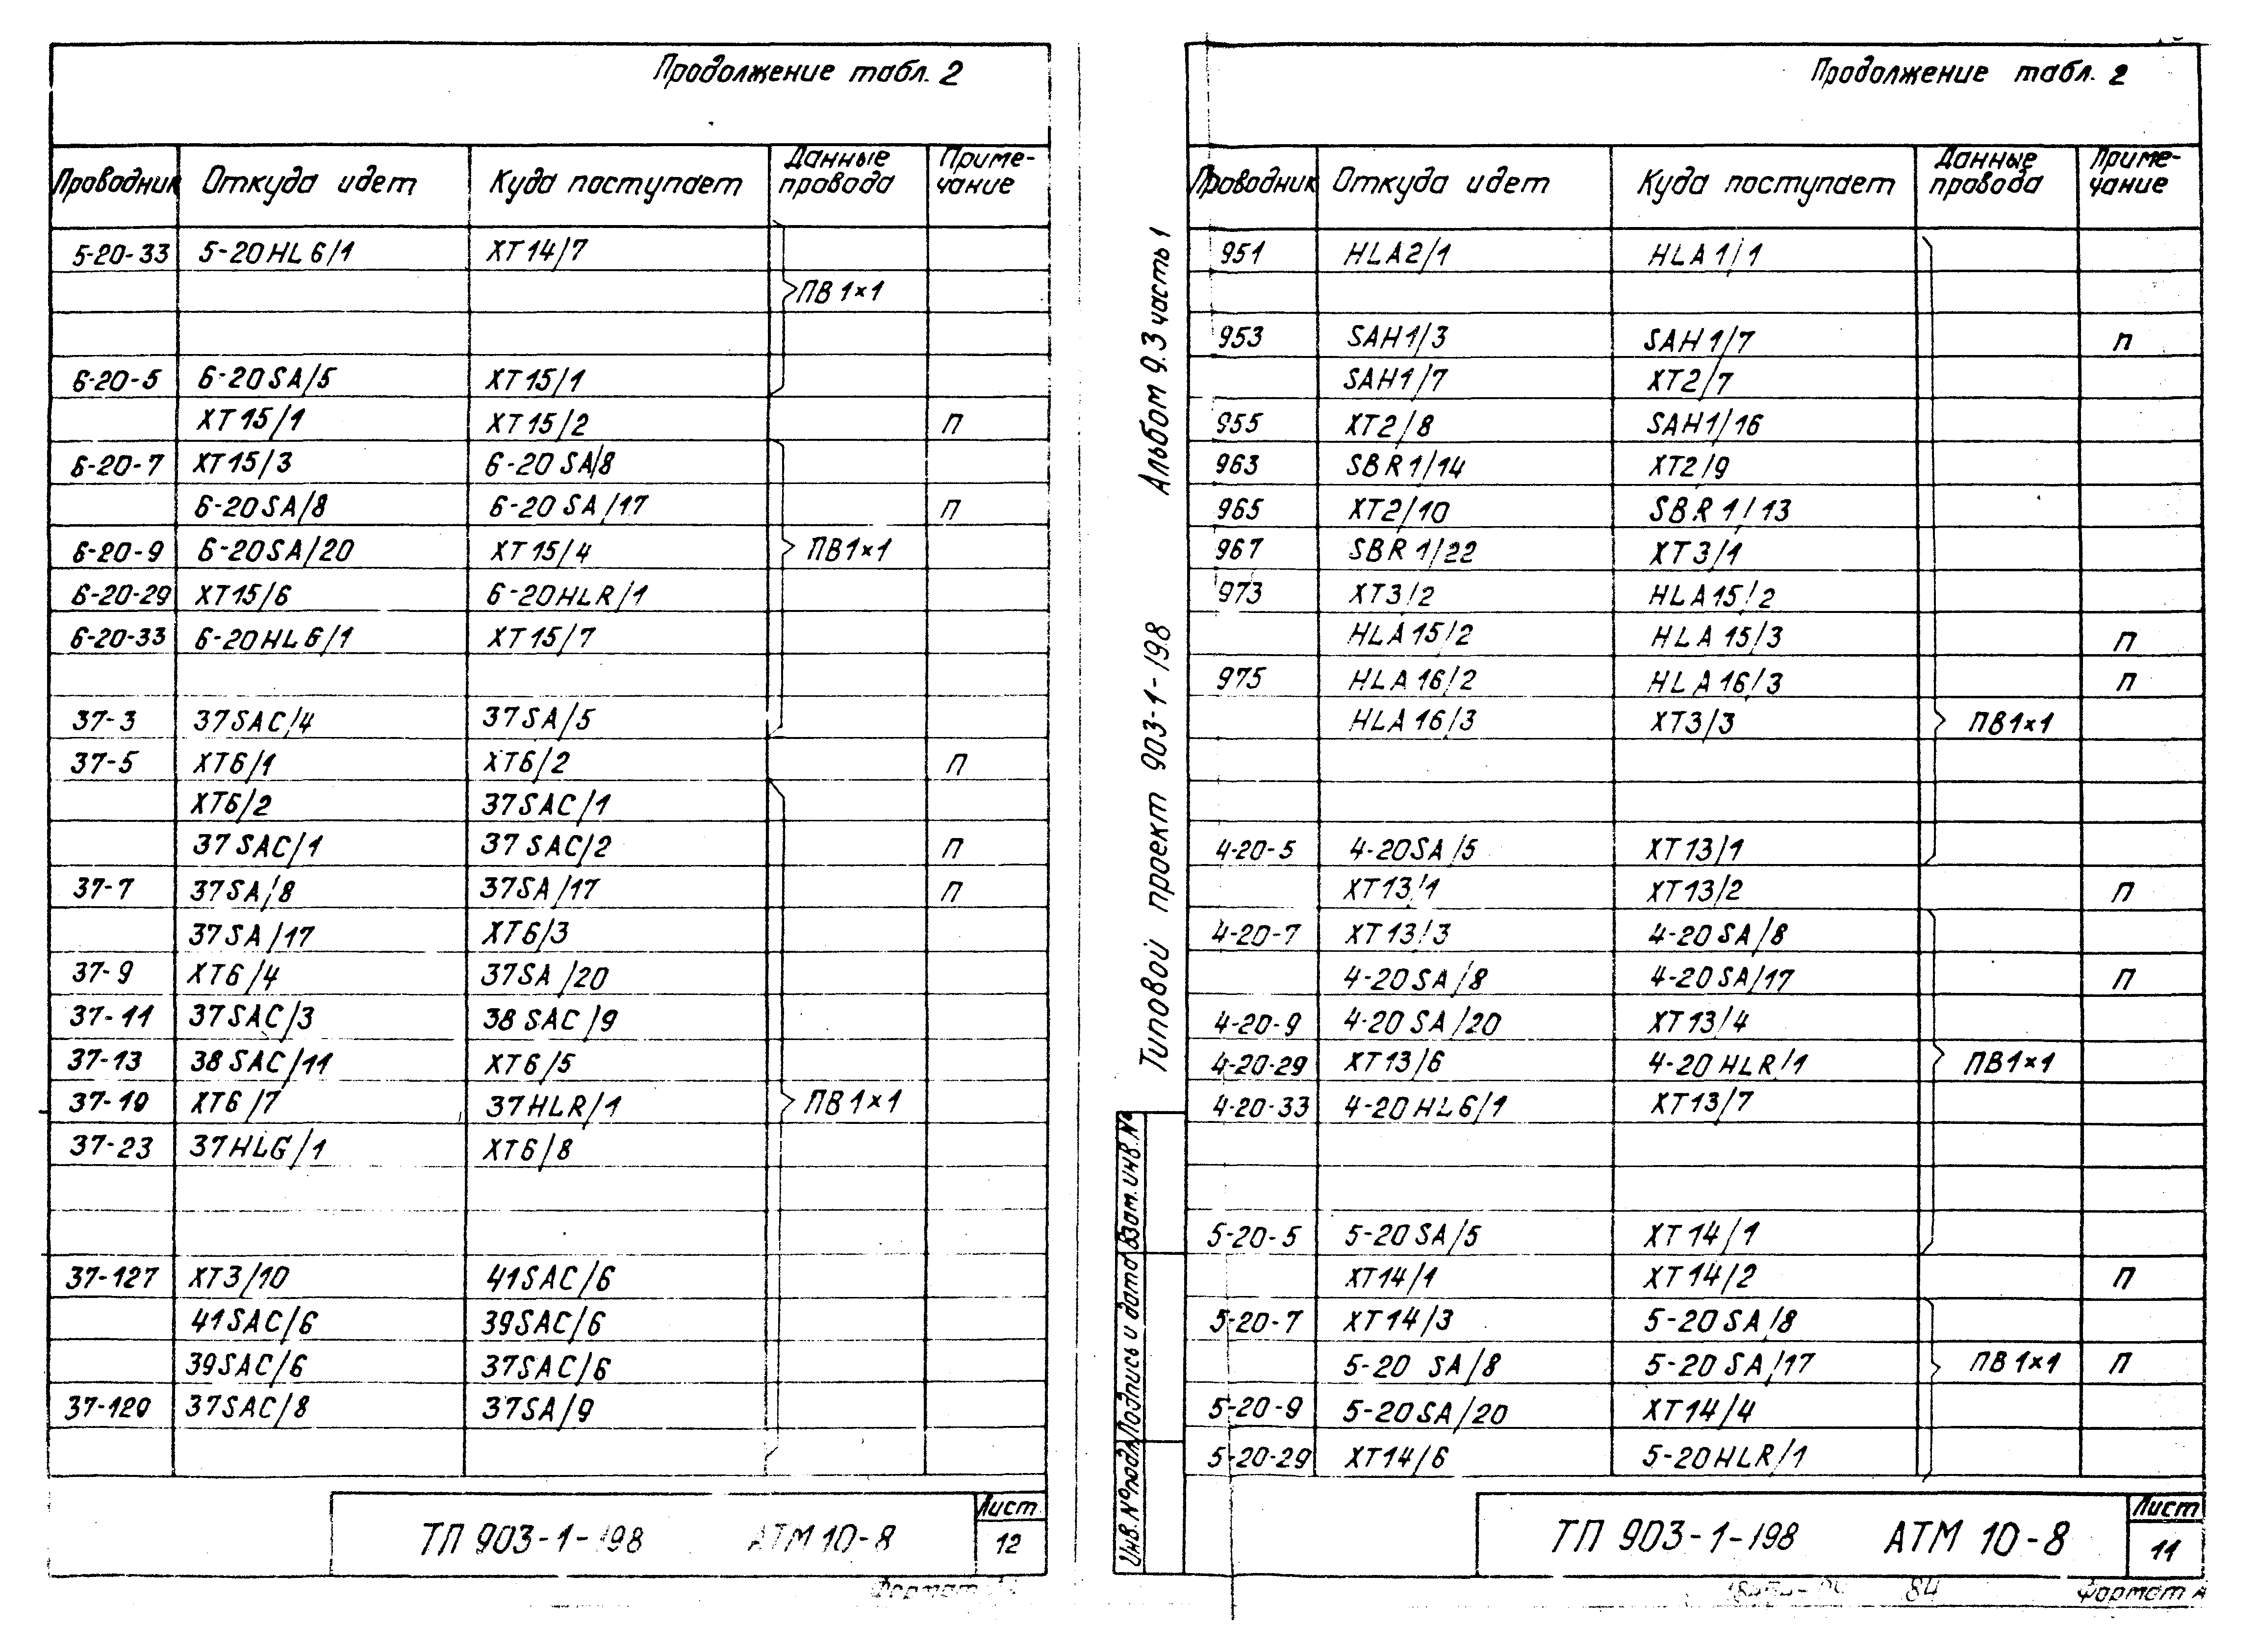 Продолжение табл. 2
Проводник Откуда идет Куда поступает Данные провода Приме-чание
5-20-33 5-20HL6/1 XT14/7
ПВ 1×1
6-20-5 6-20SA/5 XT15/1
XT15/1 XT15/2 П
6-20-7 XT15/3 6-20SA/8
6-20SA/8 6-20SA/17 П
6-20-9 6-20SA/20 XT15/4 ПВ1×1
6-20-29 XT15/6 6-20HLR/1
6-20-33 6-20HL6/1 XT15/7
37-3 37SAC/4 37SA/5
37-5 XT6/1 XT6/2 П
XT6/2 37SAC/1
37SAC/1 37SAC/2 П
37-7 37SA/8 37SA/17 П
37SA/17 XT6/3
37-9 XT6/4 37SA/20
37-11 37SAC/3 38SAC/9
37-13 38SAC/11 XT6/5
37-19 XT6/7 37HLR/1 ПВ1×1
37-23 37HLG/1 XT6/8
37-127 XT3/10 41SAC/6
41SAC/6 39SAC/6
39SAC/6 37SAC/6
37-129 37SAC/8 37SA/9
ТП 903-1-198 АТМ 10-8
Лист
12
Формат
Альбом 9.3 часть 1
Типовой проект 903-1-198
Взам. инв. №
Подпись и дата
Инв. № подл.
Продолжение табл. 2
Проводник Откуда идет Куда поступает Данные провода Приме-чание
951 HLA2/1 HLA1/1
953 SAH1/3 SAH1/7 П
SAH1/7 XT2/7
955 XT2/8 SAH1/16
963 SBR1/14 XT2/9
965 XT2/10 SBR1/13
967 SBR1/22 XT3/1
973 XT3/2 HLA15/2
HLA15/2 HLA15/3 П
975 HLA16/2 HLA16/3 П
HLA16/3 XT3/3 ПВ1×1
4-20-5 4-20SA/5 XT13/1
XT13/1 XT13/2 П
4-20-7 XT13/3 4-20SA/8
4-20SA/8 4-20SA/17 П
4-20-9 4-20SA/20 XT13/4
4-20-29 XT13/6 4-20HLR/1 ПВ1×1
4-20-33 4-20HL6/1 XT13/7
5-20-5 5-20SA/5 XT14/1
XT14/1 XT14/2 П
5-20-7 XT14/3 5-20SA/8
5-20 SA/8 5-20SA/17 ПВ1×1 П
5-20-9 5-20SA/20 XT14/4
5-20-29 XT14/6 5-20HLR/1
ТП 903-1-198 АТМ 10-8
Лист
11
84 Формат А